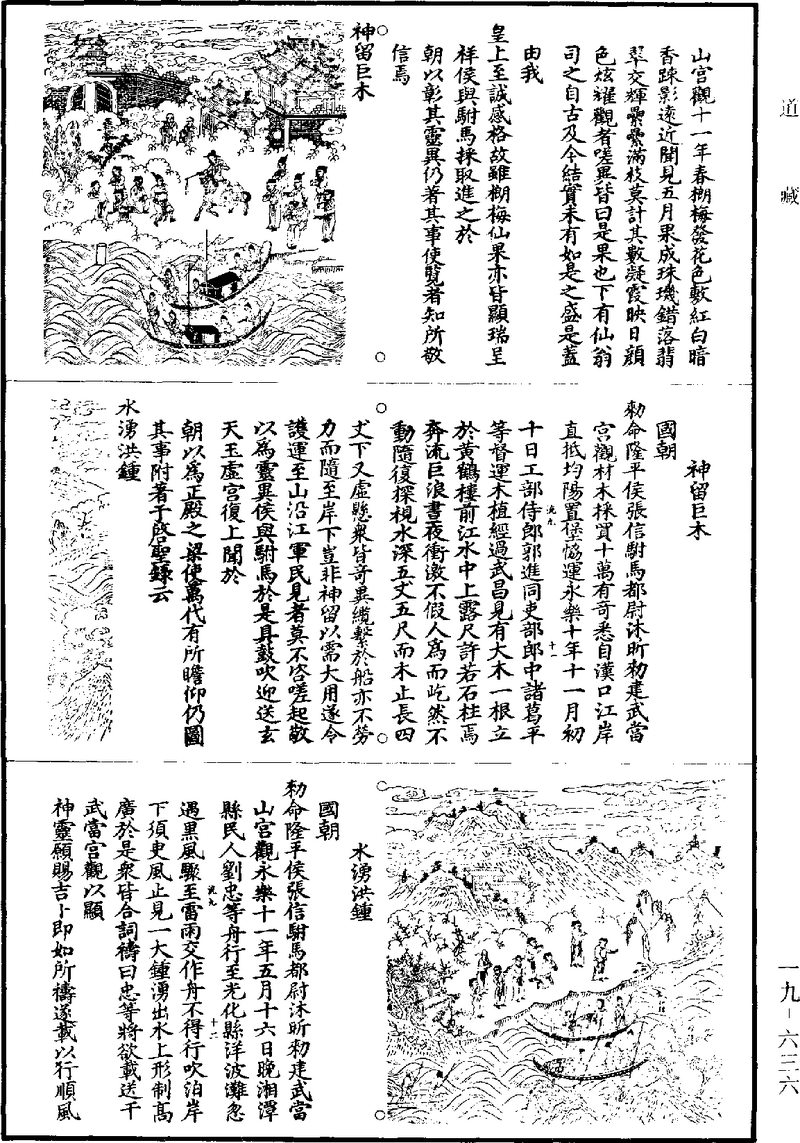 道藏
山宮觀十一年春榔梅發花色敷紅白暗
香踈影遠近聞見五月果成珠璣錯落翡
翠交輝纍纍滿枝莫計其數凝霞映日顏
色炫耀觀者嗟異皆曰是果也下有仙翁
司之自古及今結實未有如是之盛是蓋
由我
皇上至誠感格故雖榔梅仙果亦皆顯瑞呈
祥侯與駙馬採取進之於
朝以彰其靈異仍著其事使覽者知所敬
信焉
神留巨木
神留巨木
國朝
勑命隆平侯張信駙馬都尉沐昕勑建武當
宮觀材木採買十萬有奇悉自漢口江岸
直抵均陽置堡恊運永樂十年十一月初
十日工部侍郎郭進同吏部郎中諸葛平
等督運木植經過武昌見有大木一根立
於黃鶴樓前江水中上露尺許若石柱焉
奔流巨浪晝夜衝激不假人為而屹然不
動隨復探視水深五丈五尺而木止長四
丈下又虛懸衆皆奇異纜繫於船亦不勞
力而隨至岸下豈非神留以需大用遂令
護運至山沿江軍民見者莫不咨嗟起敬
以為靈異侯與駙馬於是具鼓吹迎送玄
天玉虛宮復上聞於
朝以為正殿之梁使萬代有所瞻仰仍圖
其事附著于啓聖錄云
水湧洪鍾
水湧洪鍾
國朝
勑命隆平侯張信駙馬都尉沐昕勑建武當
山宮觀永樂十一年五月十六日晚湘潭
縣民人劉忠等舟行至光化縣洋波灘忽
遇黑風驟至雷雨交作舟不得行吹泊岸
下須臾風止見一大鍾湧出水上形制高
廣於是衆皆合詞禱曰忠等將欲載送于
武當宮觀以顯
神靈願賜吉卜即如所禱遂載以行順風
一九－六三六